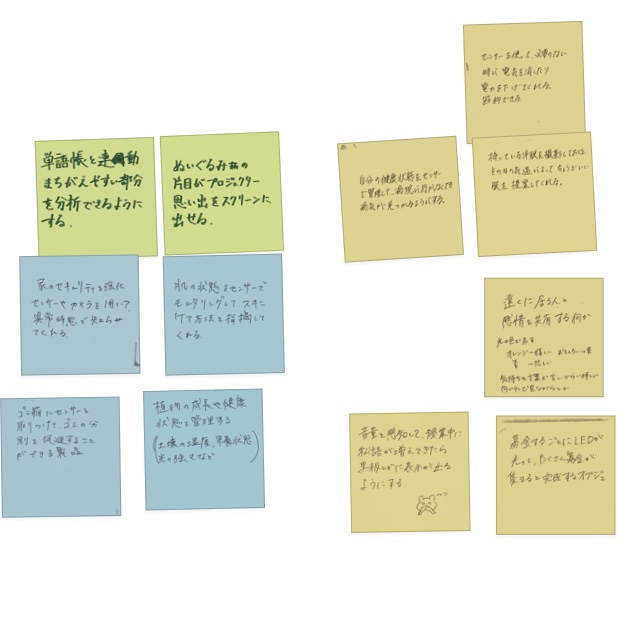 単語帳と連動
まちがえやすい部分
を分析できるように
する.
ぬいぐるみ型の
片目がプロジェクター
思い出をスクリーンに
出せる.
家のセキュリティを強化
センサーやカメラを用い?
異常時態で知らせ
てくれる.
肌の状態をセンサーで
モニタリングして スキン
ケア方法を指摘して
くれる.
ゴミ箱にセンサーを
取りつけて、ゴミの分
別を促進すること
ができる製品
植物の成長や健康
状態を管理する
(土壌の湿度、栄養状態
光の強さなど)
センサーを使って、必要のない
時に電気を消したり
電力を下げてくれる.
節約できる.
自分の健康状態をセンサー
で管理して、病院に行かなくても
病気が見つかるようにする。
持っている洋服を撮影しておくと
その日の気温によってちょうどいい
服を提案してくれる.
遠くに居る人と
感情を共有する何か
光の色が表す
オレンジ→嬉しい
青→悲しい
音量を感知して、授業中に
私語が増えてきたら
黒板とかに表示が出る
ようにする
募金するごとにLEDが
光って、たくさん募金が
集まると完成するオブジェ